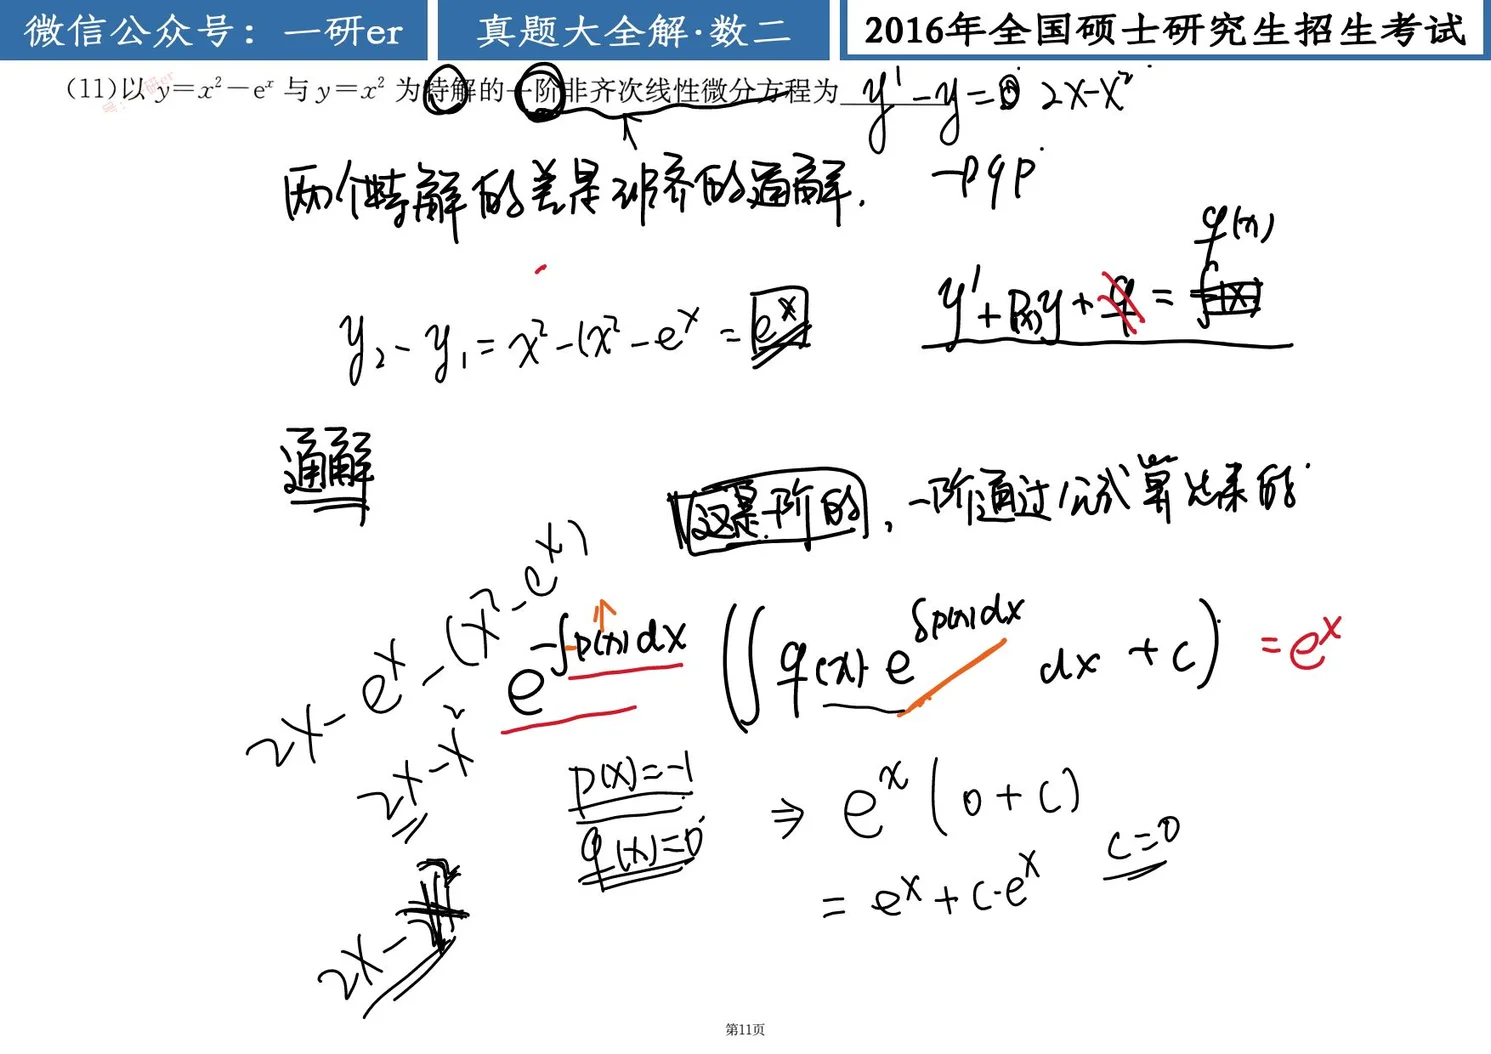 微信公众号：一研er
真题大全解·数二
2016年全国硕士研究生招生考试
(11)以 y=x²-eˣ 与 y=x² 为特解的一阶非齐次线性微分方程为________
y'-y= 2x-x²
两个特解的差是非齐的通解.
-p q p
q(x)
y₂-y₁=x²-(x²-eˣ =eˣ
y'+p(x)y+q=
通解
这是一阶的，一阶通过公式算出来的
2x-eˣ-(x²-eˣ)
e^{-∫p(x)dx} (∫q(x)·e^{∫p(x)dx} dx+c) =eˣ
2x-x²
p(x)=-1
q(x)=0
⇒ eˣ(0+c)
c=0
= eˣ+c·eˣ
2x-
第11页